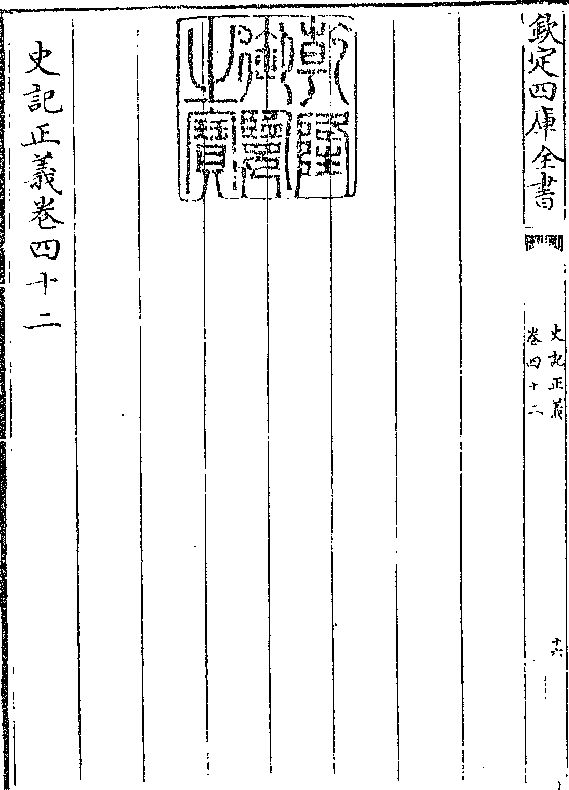 欽定四庫全書
史記正義
卷四十二
十六
乾隆
御覽
之寶
史記正義卷四十二